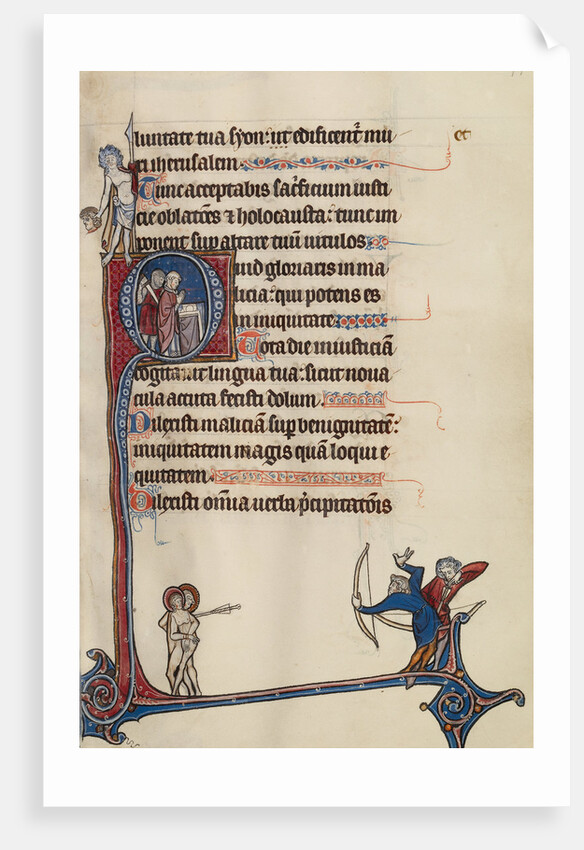 luntate tua syon: ut edificent᷑ mu
ri iherusalem.
Tunc acceptabis sac᷑ficium iusti
cie oblatōes ⁊ holocausta: tunc im
ponent sup altare tuū uitulos
Quid gloriaris in ma
licia: qui potens es
in iniquitate.
Tota die iniusticiā
cogitauit lingua tua: sicut noua
cula accuta fecisti dolum.
Dilexisti maliciā sup benignitatē:
iniquitatem magis quā loqui e
quitatem.
Dilexisti om̄ia uerba p᷑cipitatōis
et